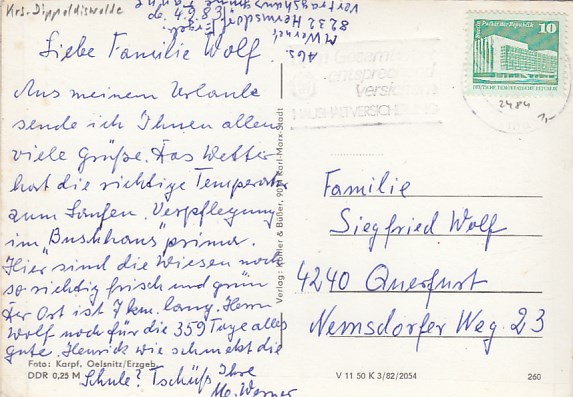 Krs. Dippoldiswalde
Abs.
M. Werner
8232 Hermsdorf/Erzgeb.
d. 4.9.83
Liebe Familie Wolf.
Aus meinem Urlaube
sende ich Ihnen allen
viele Grüße. Das Wetter
hat die richtige Temperatur
zum Laufen. Verpflegung
im „Buschhaus" prima.
Hier sind die Wiesen noch
so richtig frisch und grün
Der Ort ist 7 km. lang. Herrn
Wolf noch für die 359 Tage alles
gute. Henrick wie schmeckt die
Schule? Tschüß Ihre
Mo. Werner
Foto: Karpf, Oelsnitz/Erzgeb.
DDR 0,25 M
Verlag: Köhler & Büller, 9011 Karl-Marx-Stadt
Gesamt
entsprechend
Versich
HAUSHALTVERSICHERUNG
Berlin, Palast der Republik
10
DEUTSCHE DEMOKRATISCHE REPUBLIK
2484
1,-
Familie
Siegfried Wolf
4240 Querfurt
Nemsdorfer Weg. 23
V 11 50 K 3/82/2054
260